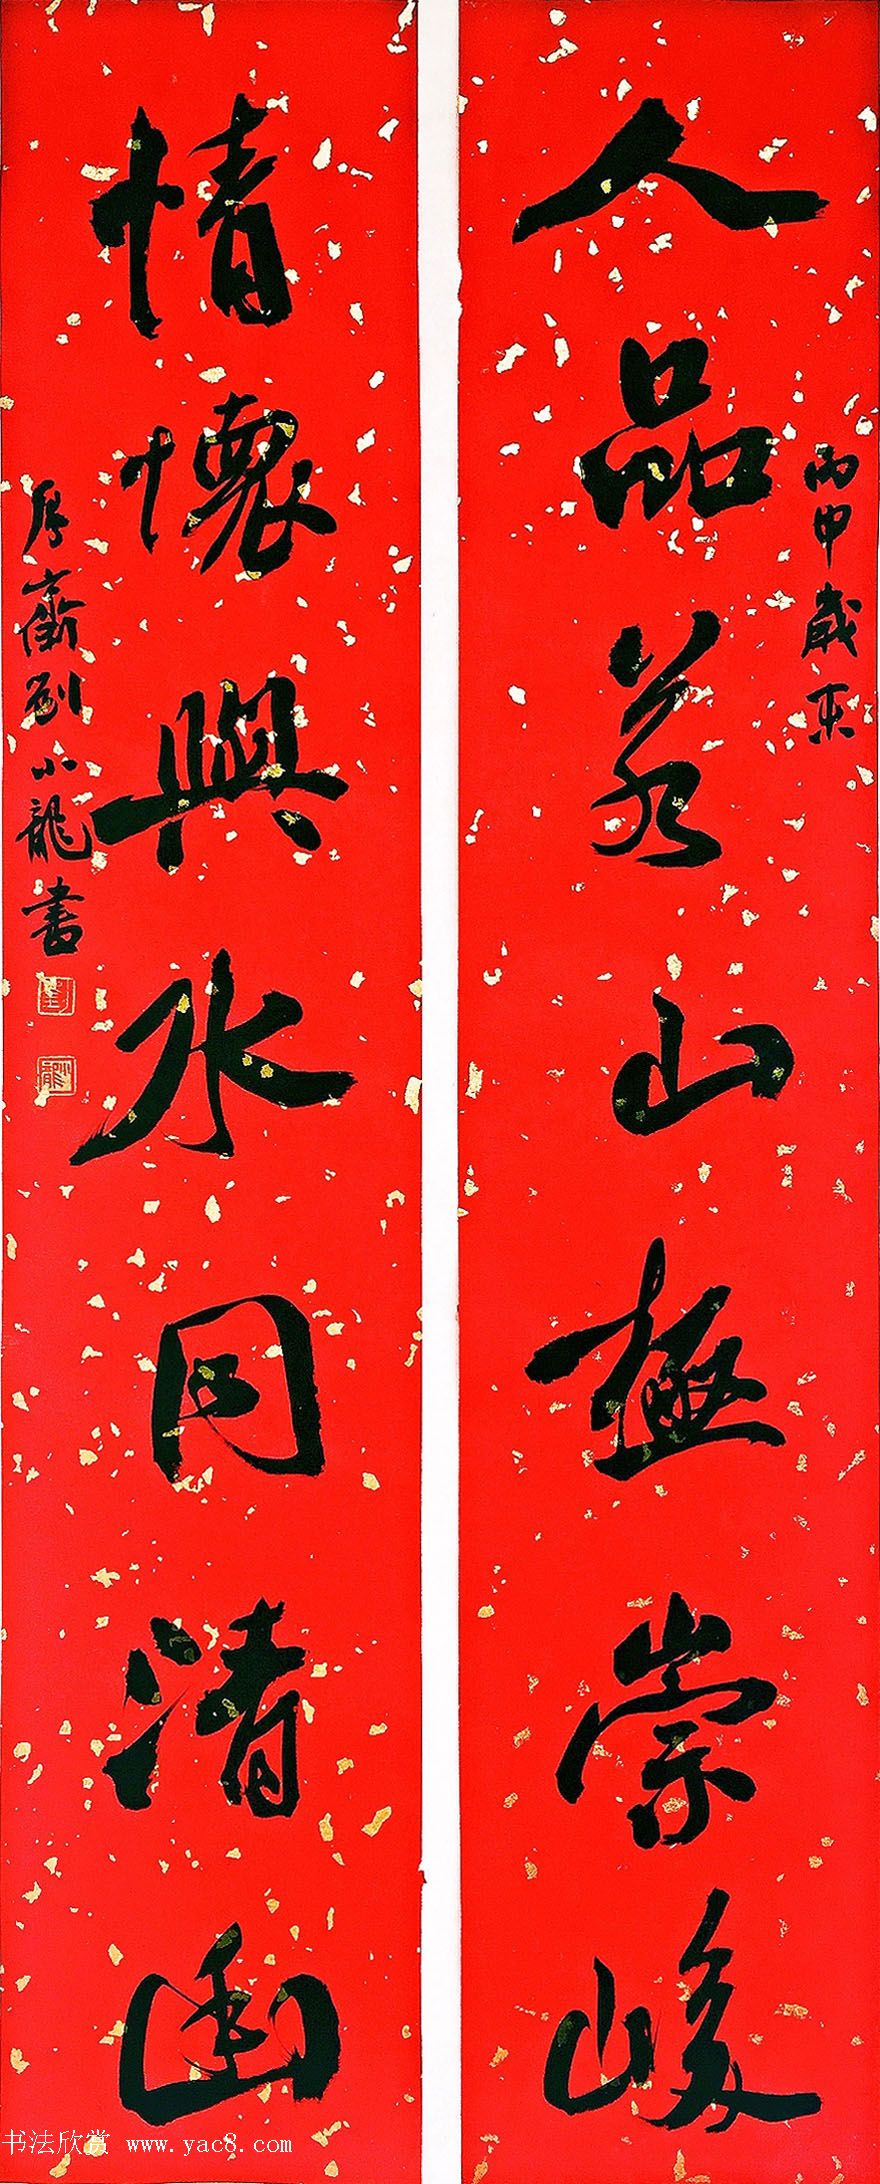 人品若山極崇峻
丙申歲
情懷與水同清幽
厚齋劉小龍書
书法欣赏 www.yac8.com